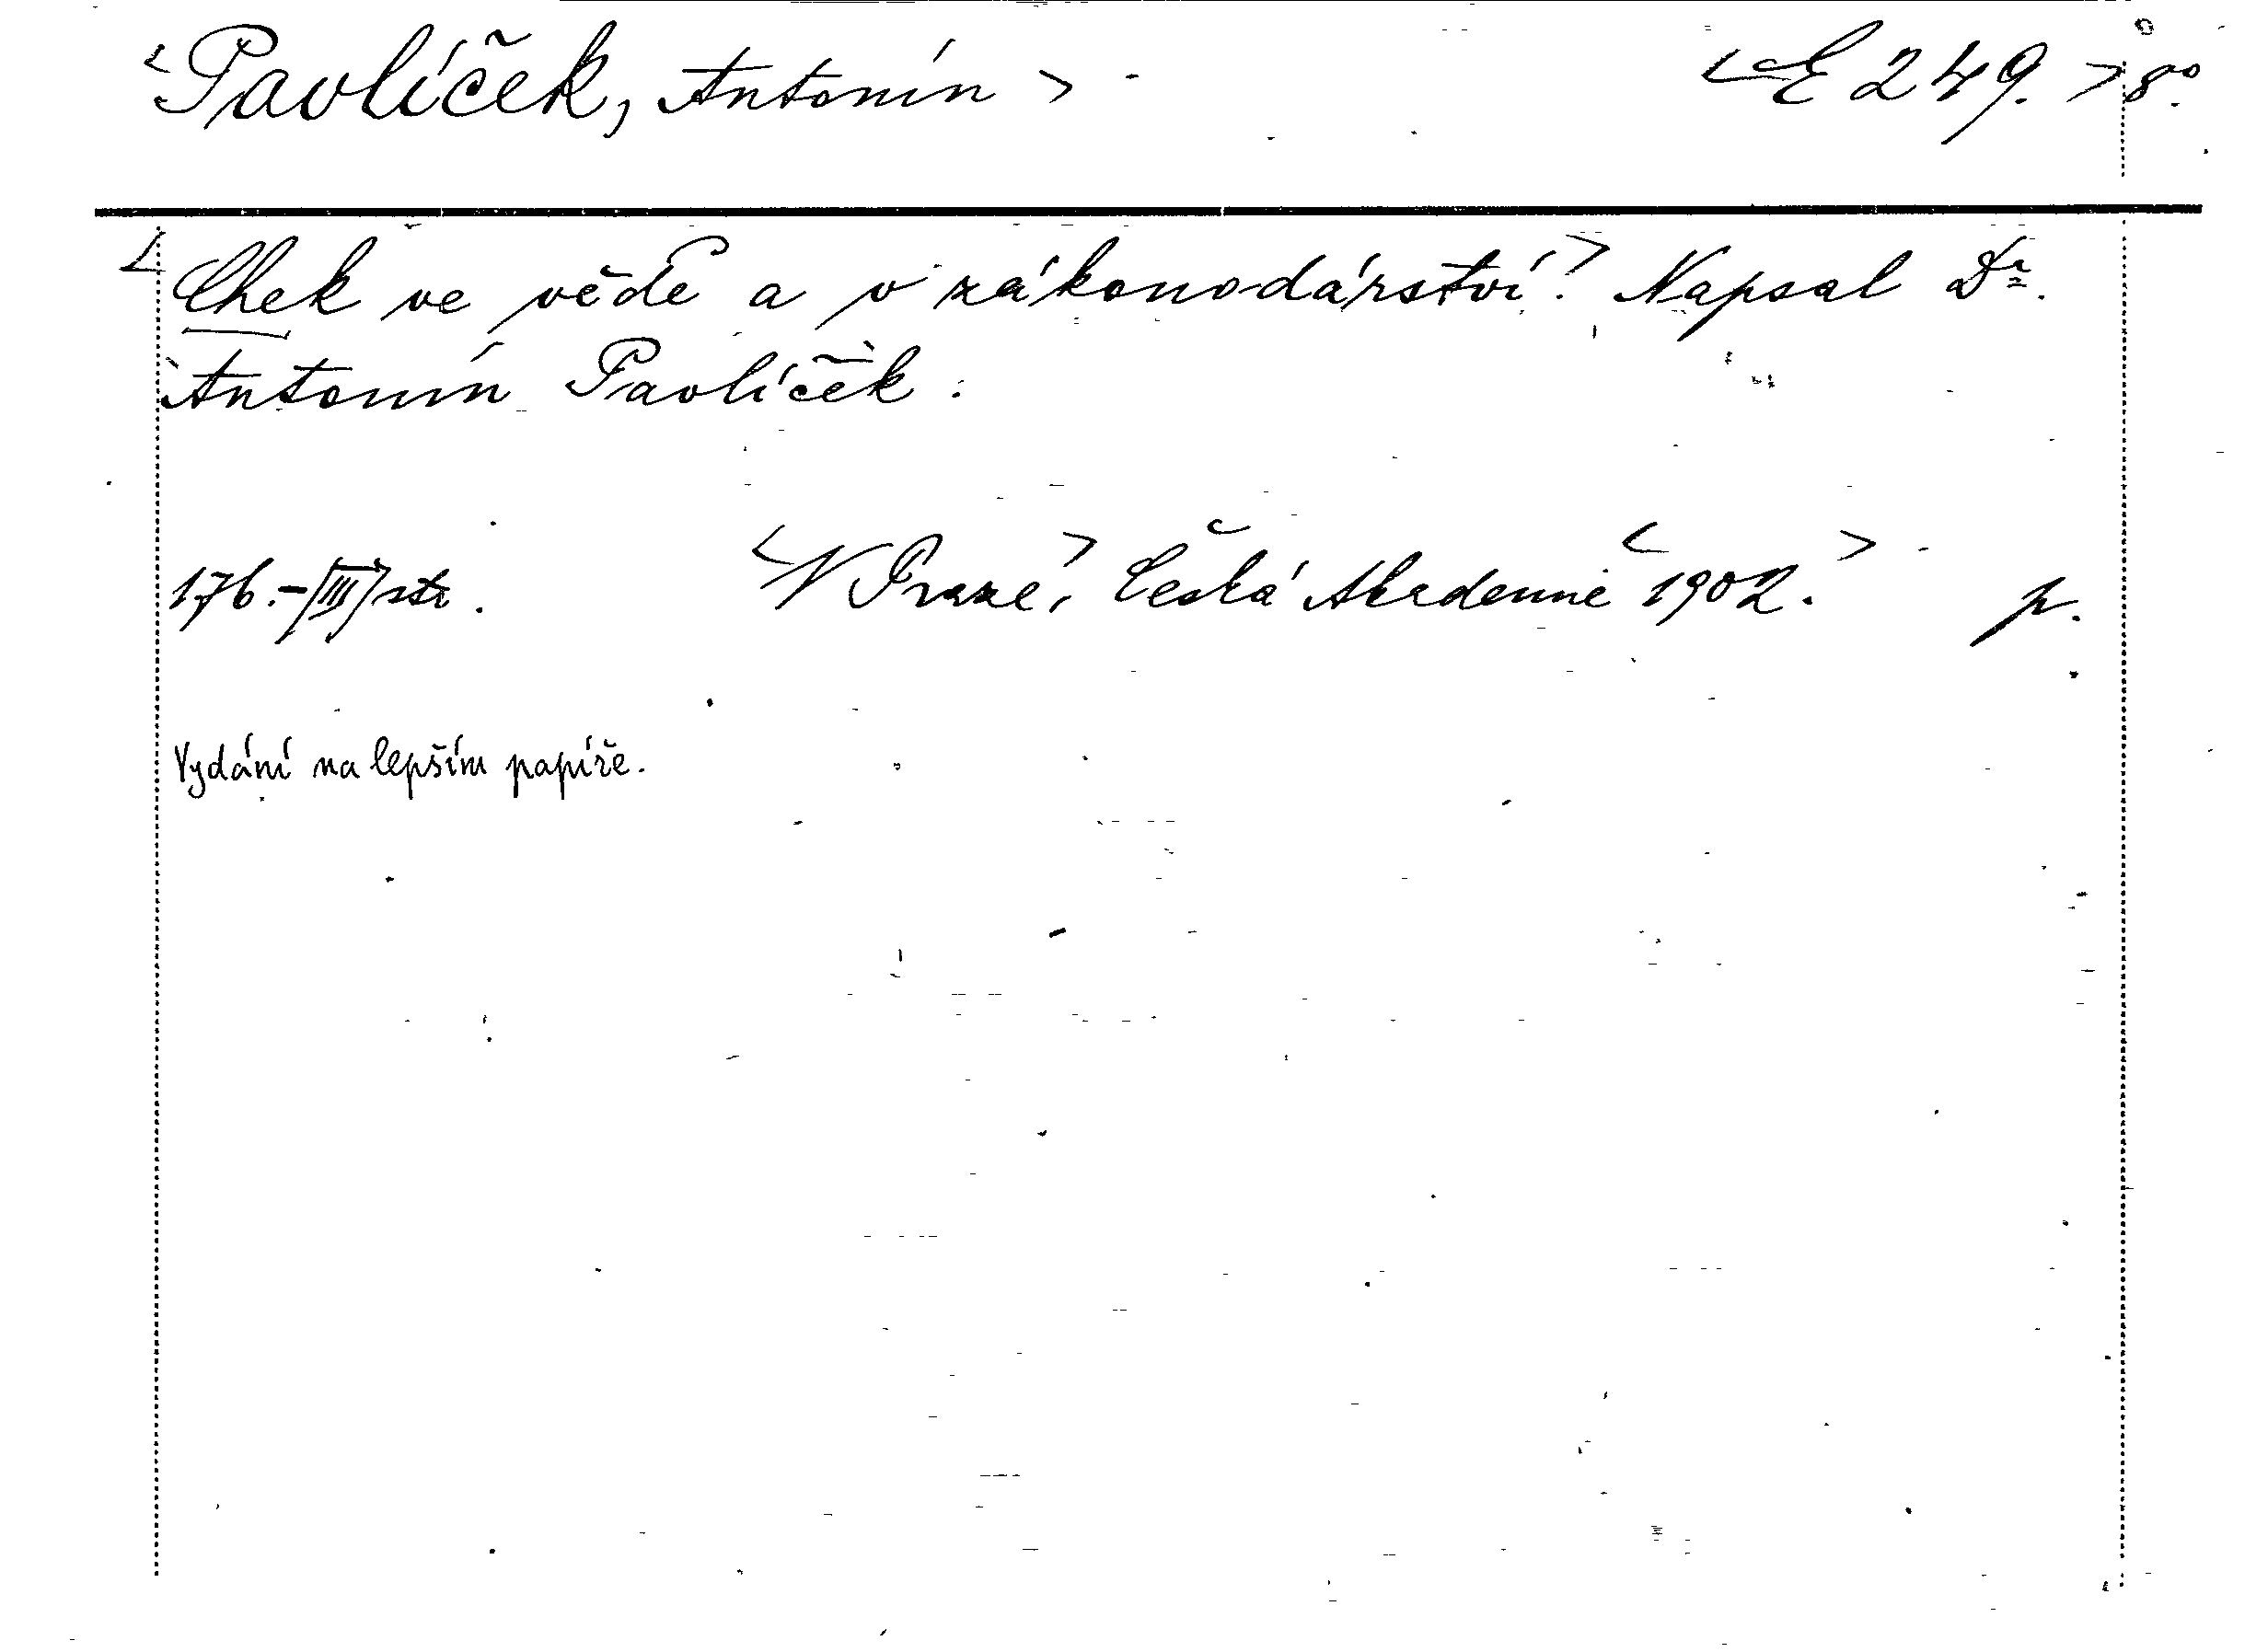 <Pavlíček, Antonín> <E 249.> 8°.
<Chek ve vědě a v zákonodárství.> Napsal Dr.
Antonín Pavlíček.
176.-[III] str. <V Praze,> Česká Akademie <1902.> p.
Vydání na lepším papíře.